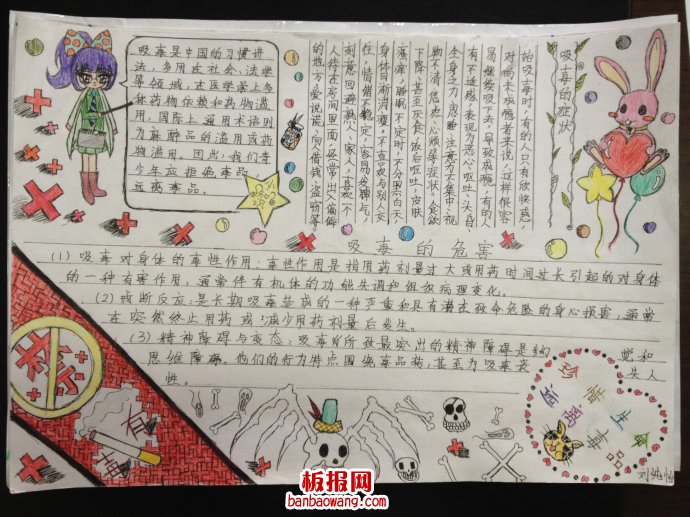 吸毒是中国的习惯讲
法，多用在社会、法学
等领域，在医学上多
称药物依赖和药物滥
用，国际上通用术语则
为麻醉品的滥用或药
物滥用。因此，我们青
少年应拒绝毒品，
远离毒品。
吸毒的症状
始吸土毒时，有的人只有欣快感，
对尚未成瘾者来说，这样很容
易继续吸下去，导致成瘾，有的人
有不适感，表现为恶心、呕吐、头昏、
全身乏力、思睡、注意力不集中、视
物不清、焦虑、心烦等症状，食欲
下降，甚至厌食，饭后呕吐，皮肤
瘙痒，睡眠不定时，不分黑白天，
身体日渐消瘦。不喜欢与别人交
往，情绪不稳定，容易发脾气，
刻意回避熟人、家人，喜欢一个
人待在房间里面，经常出入偏僻
的地方，爱说谎，向人借钱、盗窃等。
吸毒的危害
(1)吸毒对身体的毒性作用：毒性作用是指用药剂量过大或用药时间过长引起的对身体
的一种有害作用，通常伴有机体的功能失调和组织病理变化。
(2)戒断反应：是长期吸毒造成的一种严重和具有潜在致命危险的身心损害，通常
在突然终止用药或减少用药剂量后发生。
(3)精神障碍与变态：吸毒者所致最突出的精神障碍是幻觉和
思维障碍。他们的行为特点围绕毒品转，甚至为吸毒丧失人
性。
禁止
有毒
珍惜生命
远离毒品
板报网
banbaowang.com